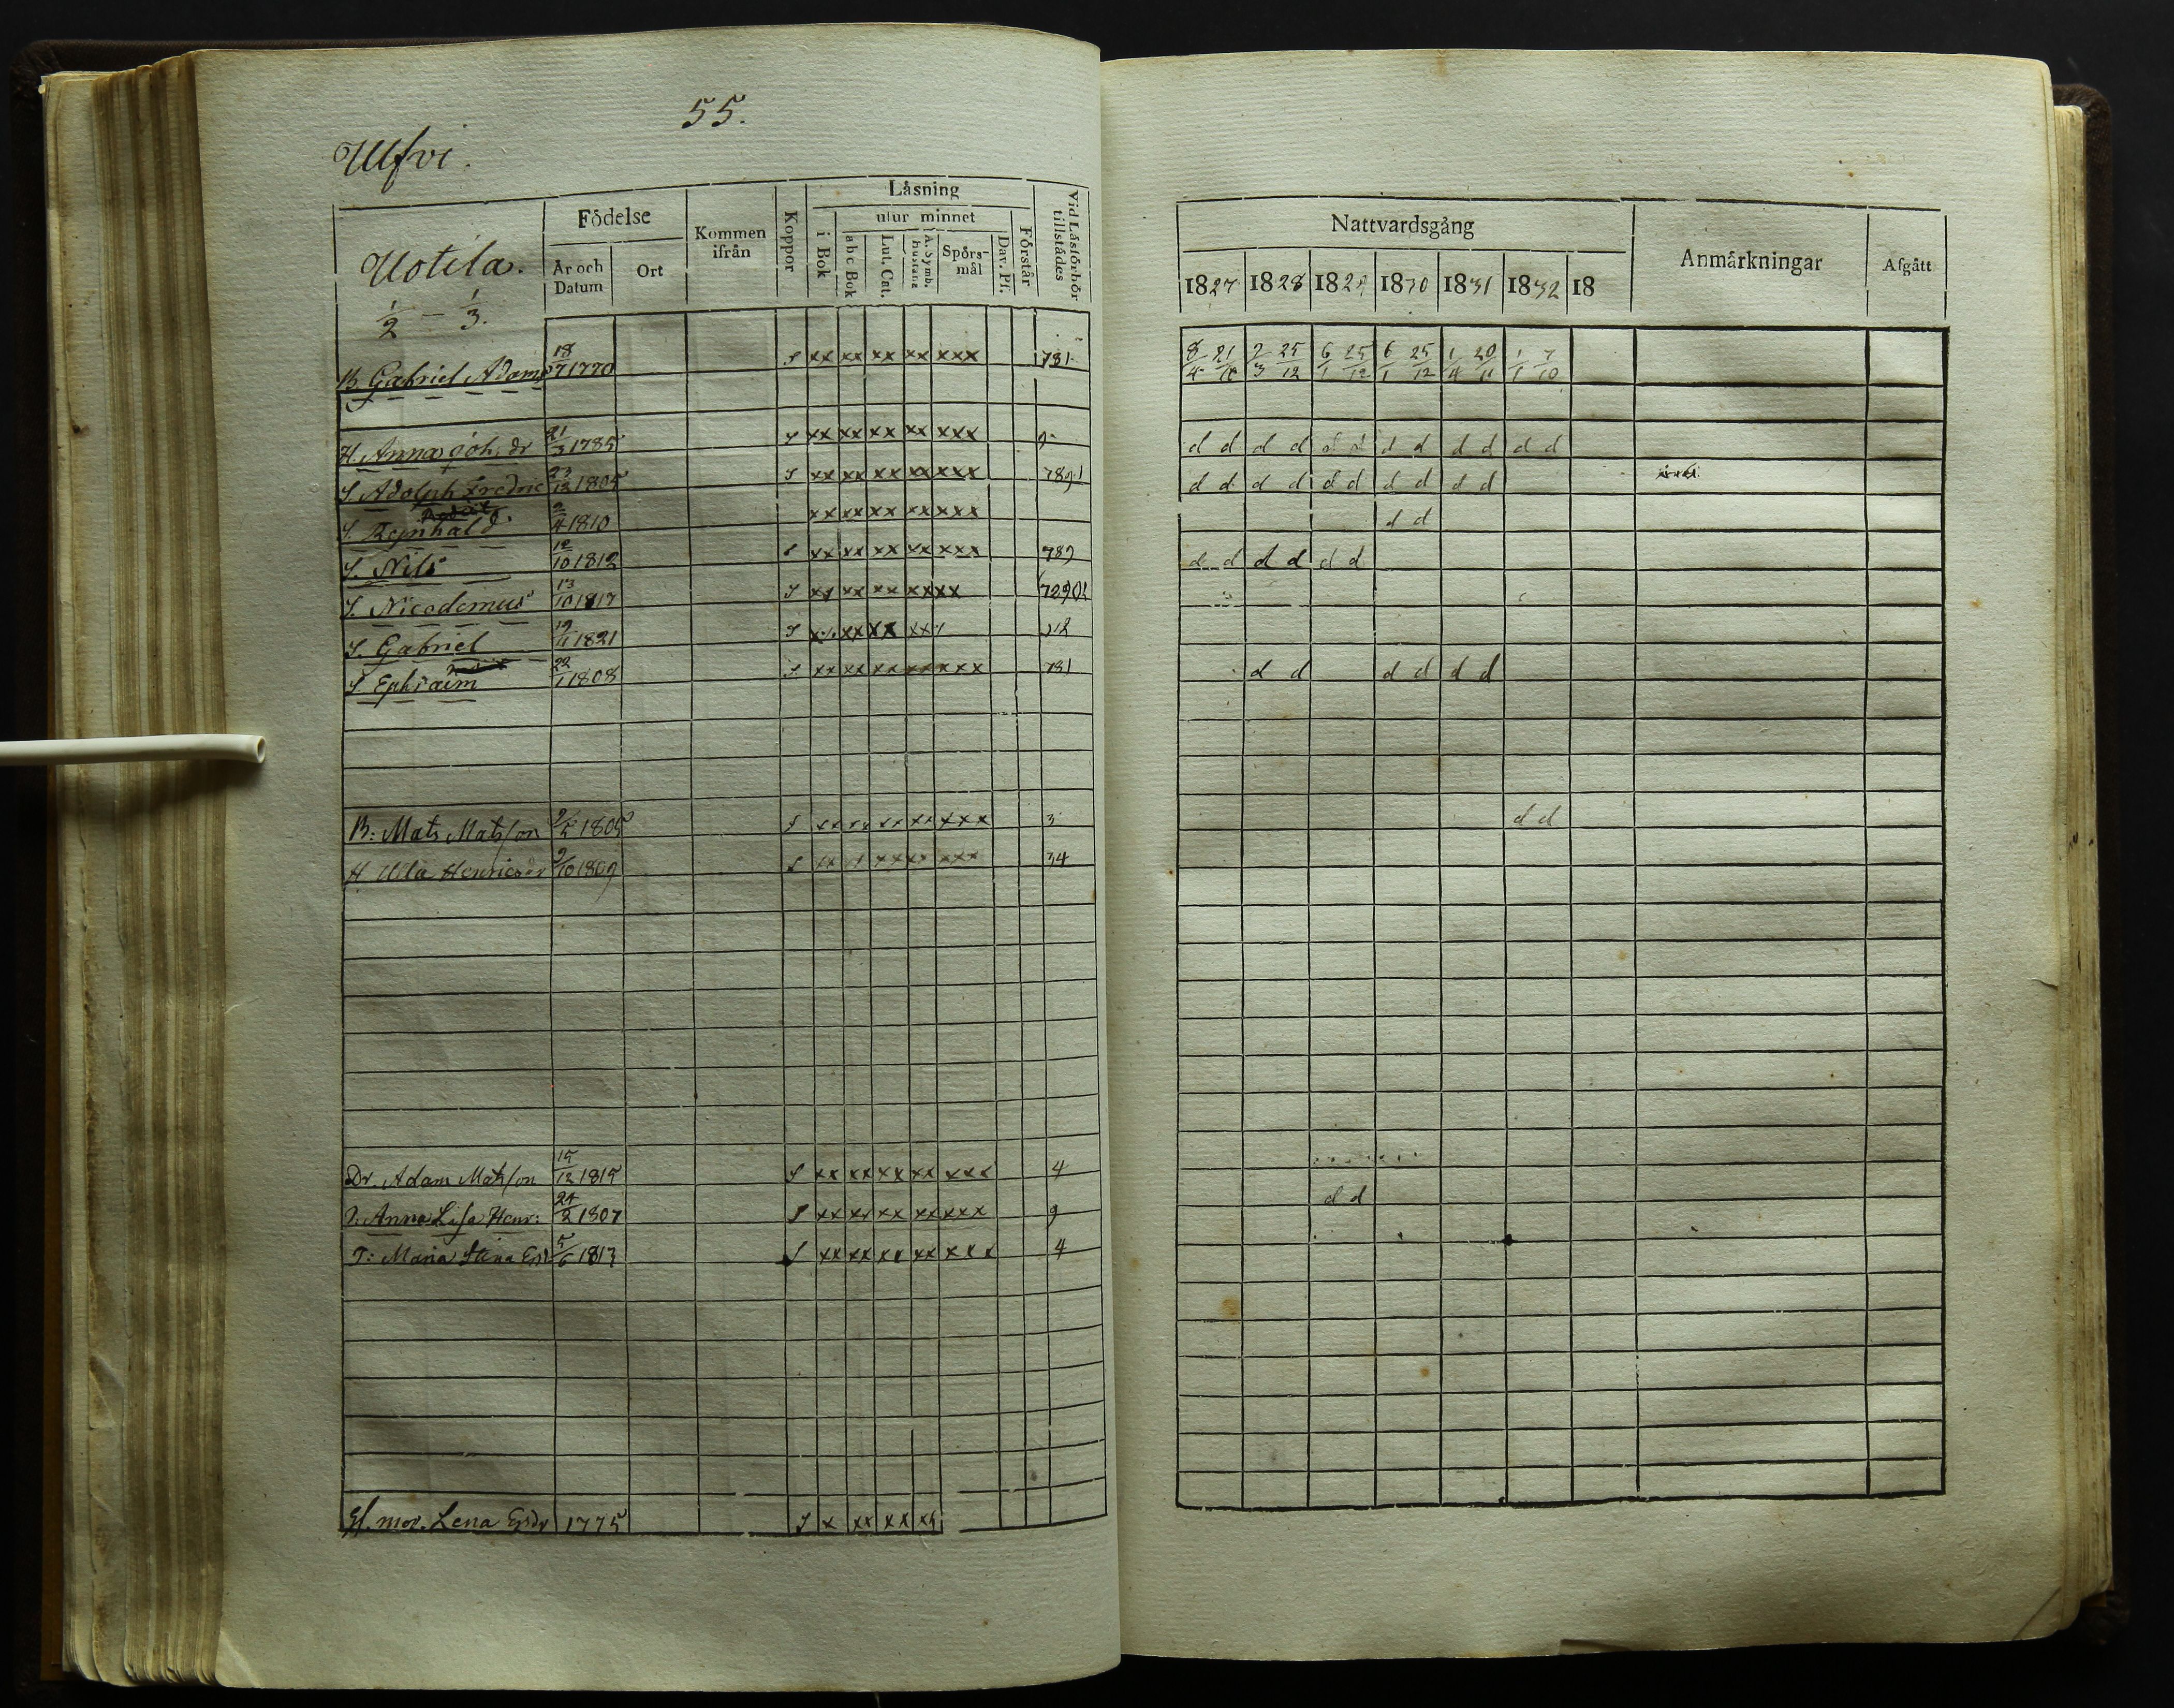 55.
Ulfvi.
Uotila.
1/2 - 1/3.
Födelse
År och Datum
Ort
Kommen ifrån
Koppor
Läsning
i Bok
utur minnet
a b c Bok
Lut. Cat.
A. Symb. hustafla
Spörsmål
Dav. Ps.
Förstår
Vid Läsförhör tillstädes
B. Gabriel Adams 18/7 1770 S xx xx xx xx xxx 781
H. Anna Joh. dr 21/3 1785 S xx xx xx xx xxx 9
S. Adolph Fredric 23/12 1805 S xx xx xx xx xxx 789 1
S. Reinhald 2/4 1810 xx xx xx xx xxx
S. Nils 12/10 1812 S xx xx xx xx xxx 789
S. Nicodemus 13/10 1817 S xx xx xx xx xx
S. Gabriel 19/11 1821 S xx xx xx
S. Ephraim 22/1 1808 S xx xx xx xx xxx 781
B: Mats Matsson 2/5 1805 S xx xx xx xx xxx 3
H Ulla Henricsdr 9/10 1809 S xx xx xx xxx 34
Dr. Adam Matsson 15/12 1815 S xx xx xx xx xxx 4
P. Anna Lisa Henr: 24/2 1807 S xx xx xx xx xxx 9
P: Maria Stina 5/6 1813 S xx xx xx xx xxx 4
mor. Lena 1775 S x xx xx xx
Nattvardsgång
Anmärkningar
Afgått
1827 1828 1829 1830 1831 1832 18
8/4 21/10 2/3 25/12 6/1 25/12 6/1 25/12 1/4 20/11 1/1 7/10
d d d d d d d d d d d d
d d d d d d d d d d
d d
d d d d d d
d d d d d d
d d
d d